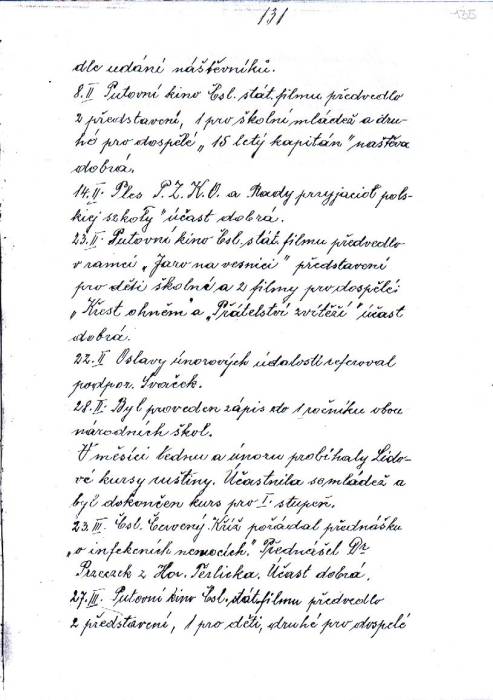 131
135
dle udání náštěvníků.
8.II Putovní kino Čsl. stát. filmu předvedlo
2 představení, 1 pro školní mládež a dru-
hé pro dospělé „15 letý kapitán" naštěva
dobrá.
14.II. Ples P.Z.K.O. a Rady przyjaciół pols-
kiej szkoły" účast dobrá.
23.II. Putovní kino Čsl. stát. filmu předvedlo
v rámci „Jaro na vesnici" představení
pro děti školné a 2 filmy pro dospělé:
„Křest ohněm" a „Přátelství zvítěží" účast
dobrá.
22.II Oslavy únorových událostí referoval
podpor. Svaček.
28.II. Byl proveden zápis do 1 ročníku obou
národních škol.
V měsíci lednu a únoru probíhaly Lido-
vé kursy ruštiny. Účastnila se mládež a
byl dokončen kurs pro I. stupeň.
23.III. Čsl. Červený Kříž pořádal přednášku
„o infekcních nemocích." Přednášel Dr
Przeczek z Hor. Těrlicka. Účast dobrá.
27.III. Putovní kino Čsl. stát. filmu předvedlo
2 představení, 1 pro děti, druhé pro dospělé